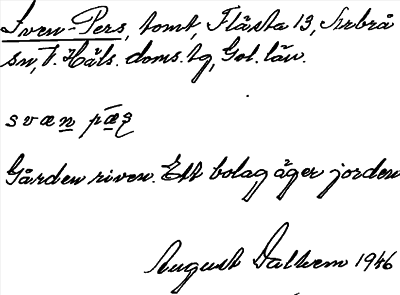 Sven-Pers, tomt, Flästa 13, Arbrå
sn, V. Häls. doms.tg, Gbl. län.
svæn pæʂ
Gården riven. Ett bolag äger jorden
August Dalkvem 1946